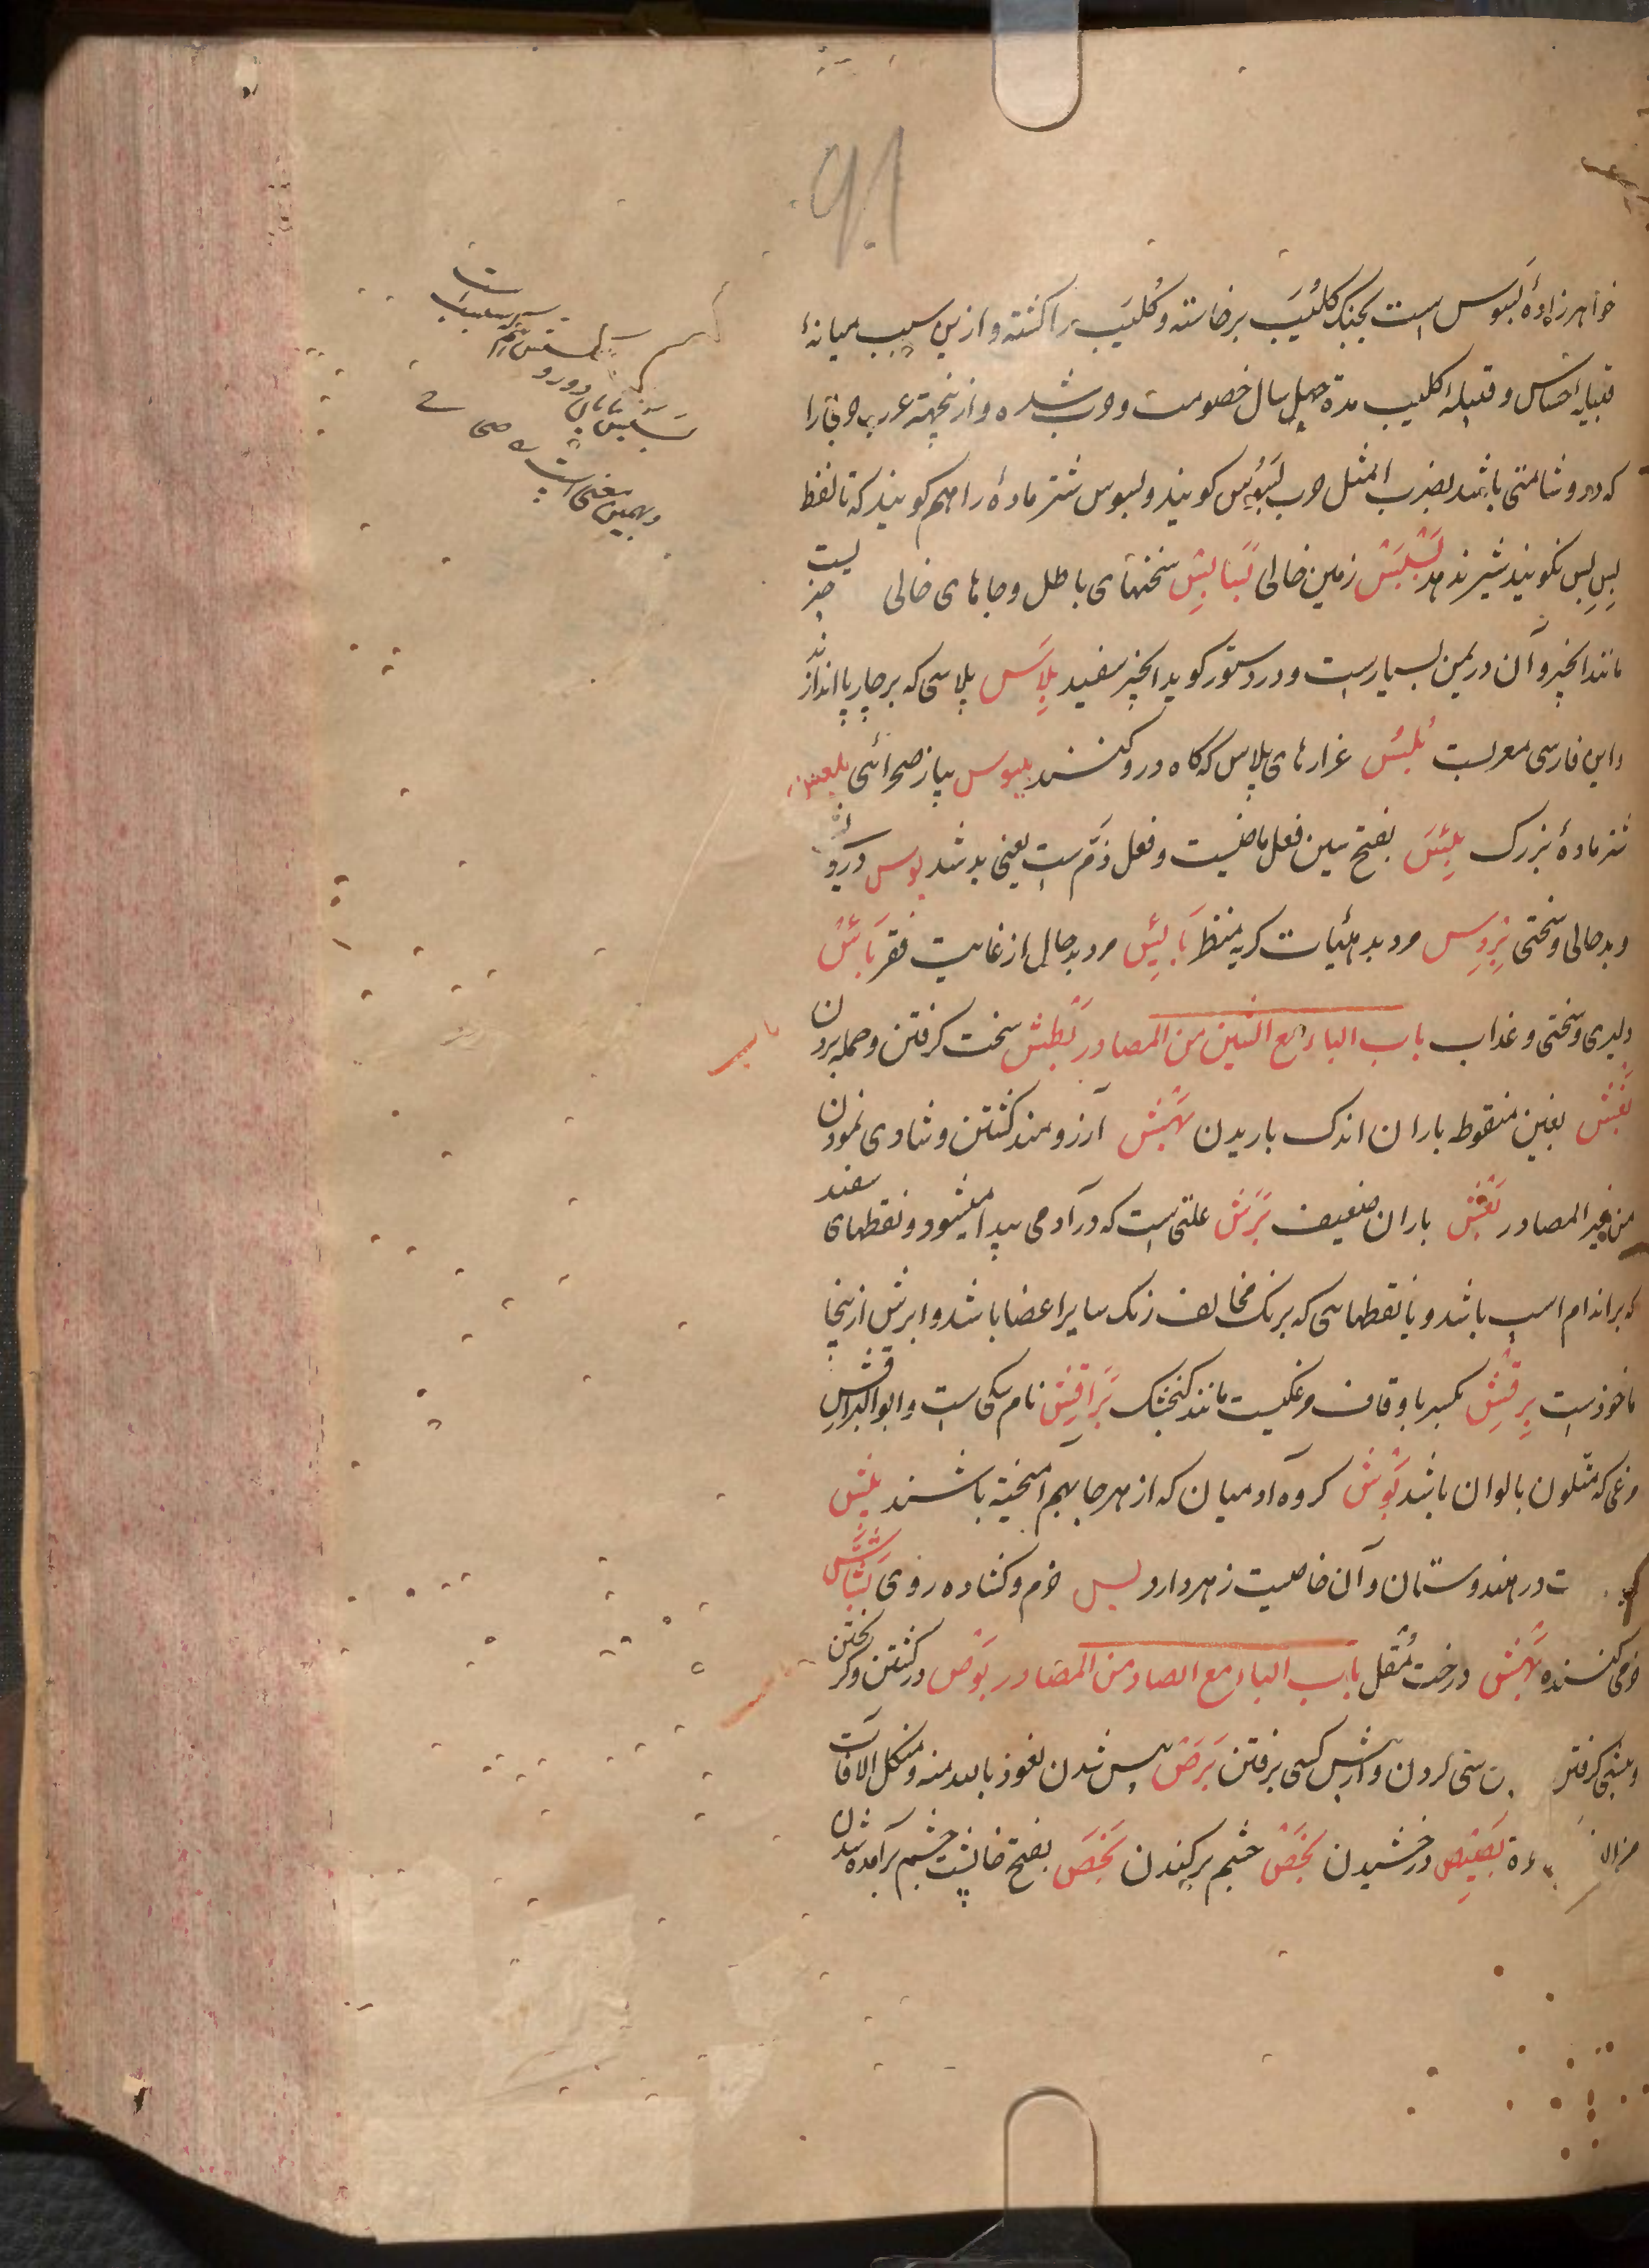 خواهرزادهٔ بسوس است بجنک کلُیَب برخاسته و کُلیَب را کشته و ازین سبب میانهٔ
قبیله احساس و قبیله کلیب مدة چهل سال خصومت و حرب شده و ازینجهته عرب حربی را
که درو شامتی باشد بضرب المثل حرب بسوس کویند و بسوس شتر مادهٔ را هم کویند که تا لفظ
بِس بِس نکویند شیر ندهد بَسْبَسْ زمین خالی بَسَابِسْ سخنهای باطل و جاهای خالی چیز
مانند انجیر و آن در یمن بسیارست و در دستور کوید انجیر سفید بِلَاسْ پلاسی که بر چارپا اندازند
واین فارسی معربست بُلُسْ غرارهای پلاس که کاه درو کنند بلبوس پیاز صحرائی بلعس
شتر مادهٔ بزرک بِئْسَ بفتح سین فعل ماضیست و فعل ذمّ ست یعنی بد شد بوس درویشی
و بدحالی و سختی مرد بد هیئات کریه منظر بَائِسْ مرد بدحال از غایت فقر بَأسْ
دلیری و سختی و عذاب باب الباء مع الشین من المصادر بَطْشْ سخت کرفتن و حمله بردن
بَغْشْ بغین منقوطه باران اندک باریدن بَهْشْ آرزومند کشتن و شادی نمودن
من غیر المصادر بَغْشْ باران ضعیف بَرَشْ علتی ست که در آدمی پیدا میشود و نقطهای سفید
که بر اندام اسب باشد و یا نقطهایی که برنک مخالف رنک سایر اعضا باشد و ابرش ازینجا
ماخوذست بِرْقِشْ بکسر با و قاف مرغکیست مانند کنجشک بَرَاقِشْ نام سکی ست و ابو البراقش
مرغی که متلون بالوان باشد بَوْشْ کروه آدمیان که از هرجا بهم آمیخته باشند بیش
ت در هندوستان و آن خاصیت زهر دارد خرم و کشاده روی بَشَّاشْ
خرمی کننده بَهْشْ درخت مُقل باب الباء مع الصاد من المصادر بَوْصْ در کشتن و کریختن
و پیشی کرفتن سستی کردن کسی برفتن بَرَصْ پیس شدن نعوذ بالله منه و من کل الافات
بَصِیصْ درخشیدن بَخْصْ چشم برکندن بَخَصْ بفتح خا پشت چشم برآمده شدن
وبهمین معنی است